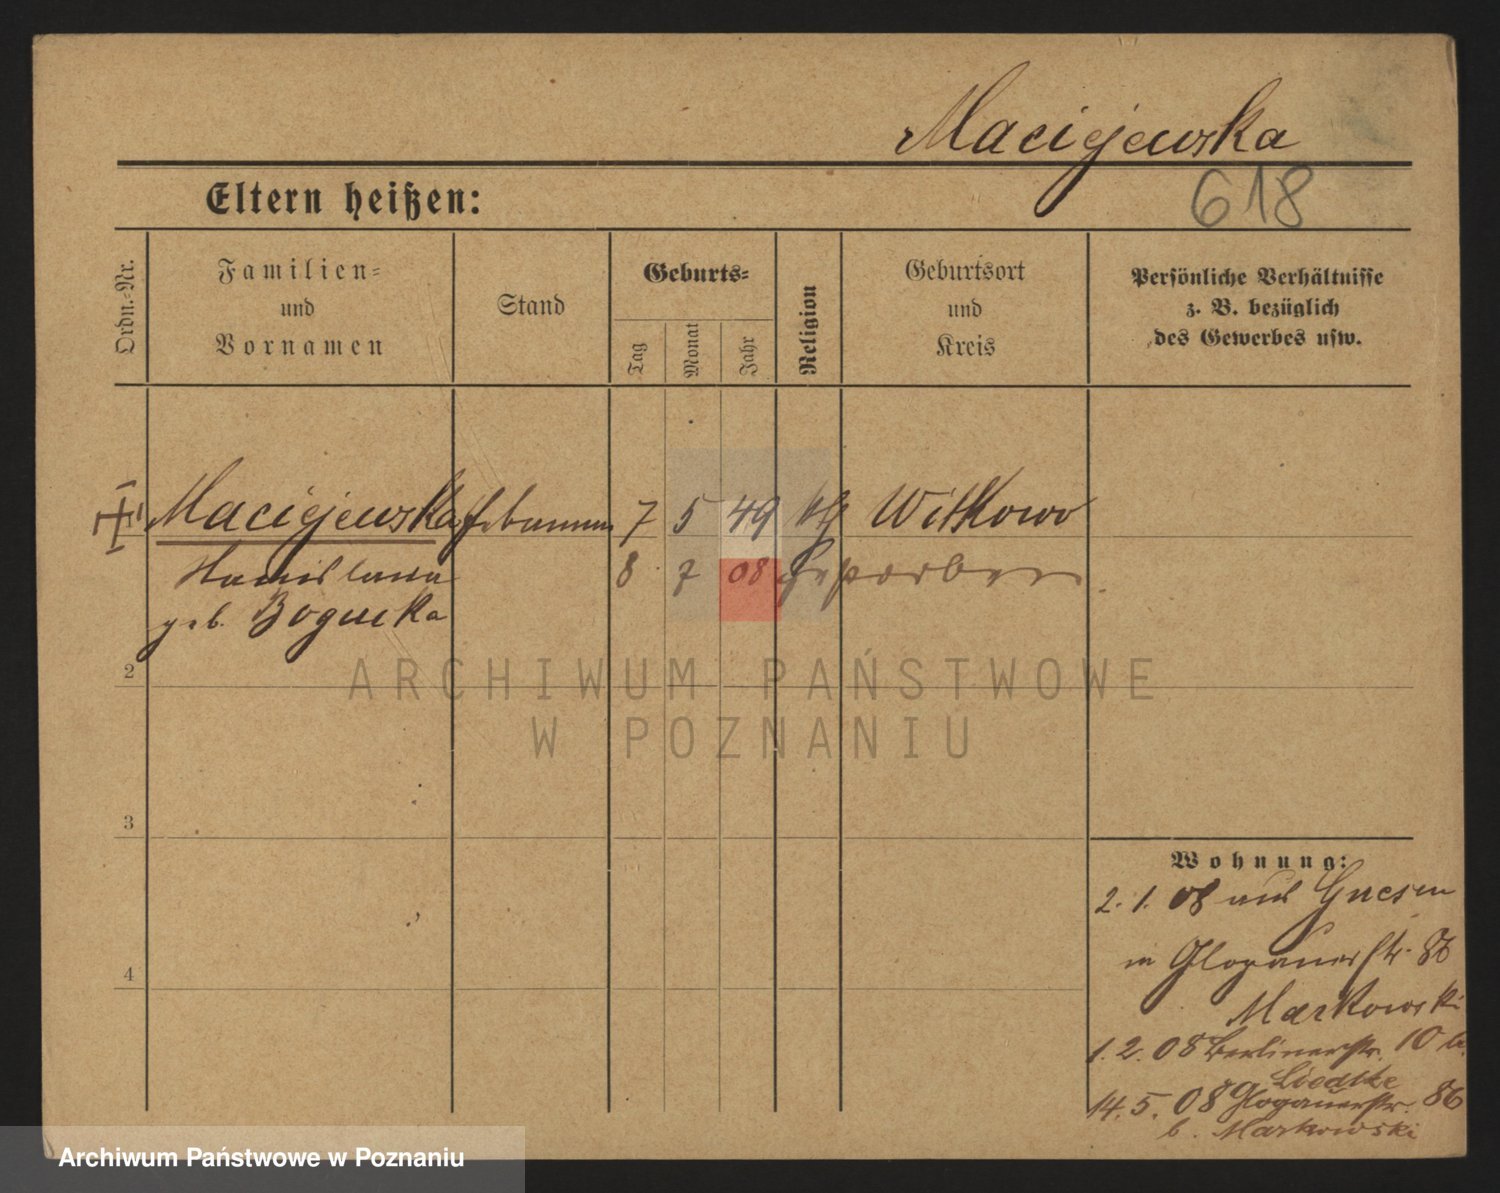 Maciejewska
618
Eltern heißen:
Ordn.-Nr.
Familien-
und
Vornamen
Stand
Geburts-
Tag
Monat
Jahr
Religion
Geburtsort
und
Kreis
Persönliche Verhältnisse
z. B. bezüglich
des Gewerbes usw.
Maciejewska Hebamme 7 5 49 kth Witkowo
Stanislawa 8 7 08 gestorben
geb. Bogucka
2
ARCHIWUM PAŃSTWOWE
W POZNANIU
3
4
Wohnung:
2. 1. 08 aus Gnesen
in Glogauerstr. 86
Markowski
1. 2. 08 Berlinerstr. 10 b.
Liedtke
14. 5. 08 Glogauerstr. 86
b. Markowski
Archiwum Państwowe w Poznaniu